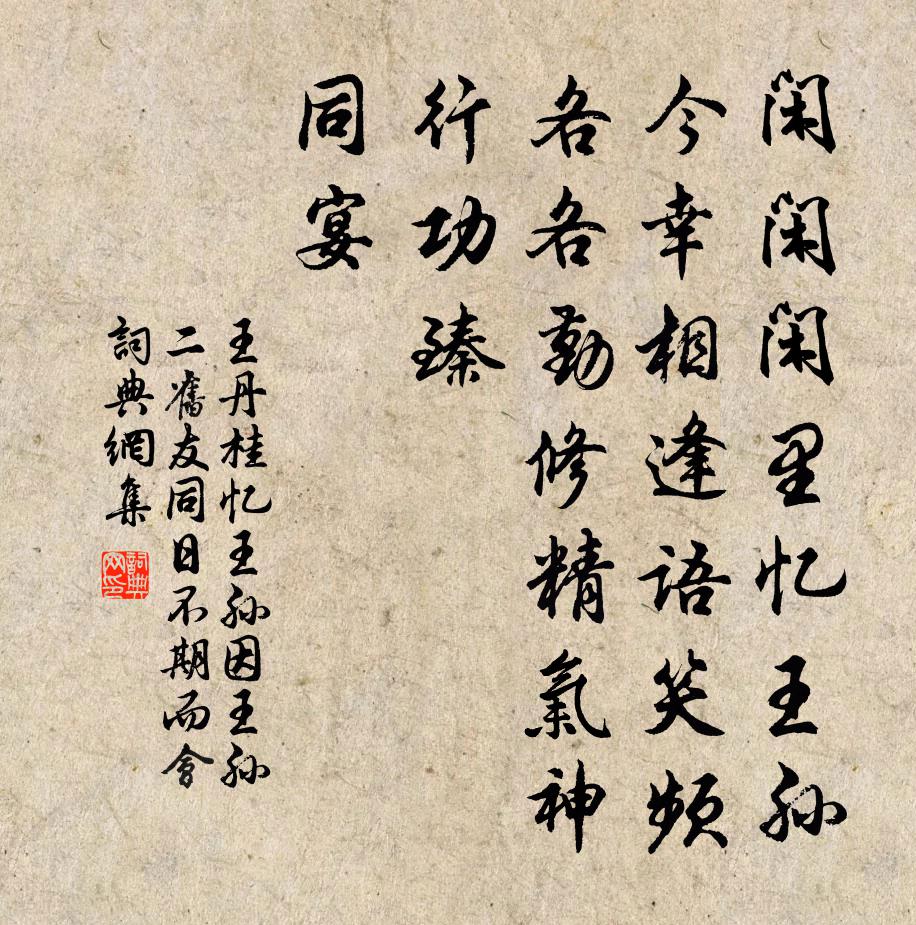 闲闲闲里忆王孙
今幸相逢语笑频
各各勤修精氣神
行功臻
同宴
王丹桂忆王孙因王孙
二舊友同日不期而會
詞典網集
詞典網印